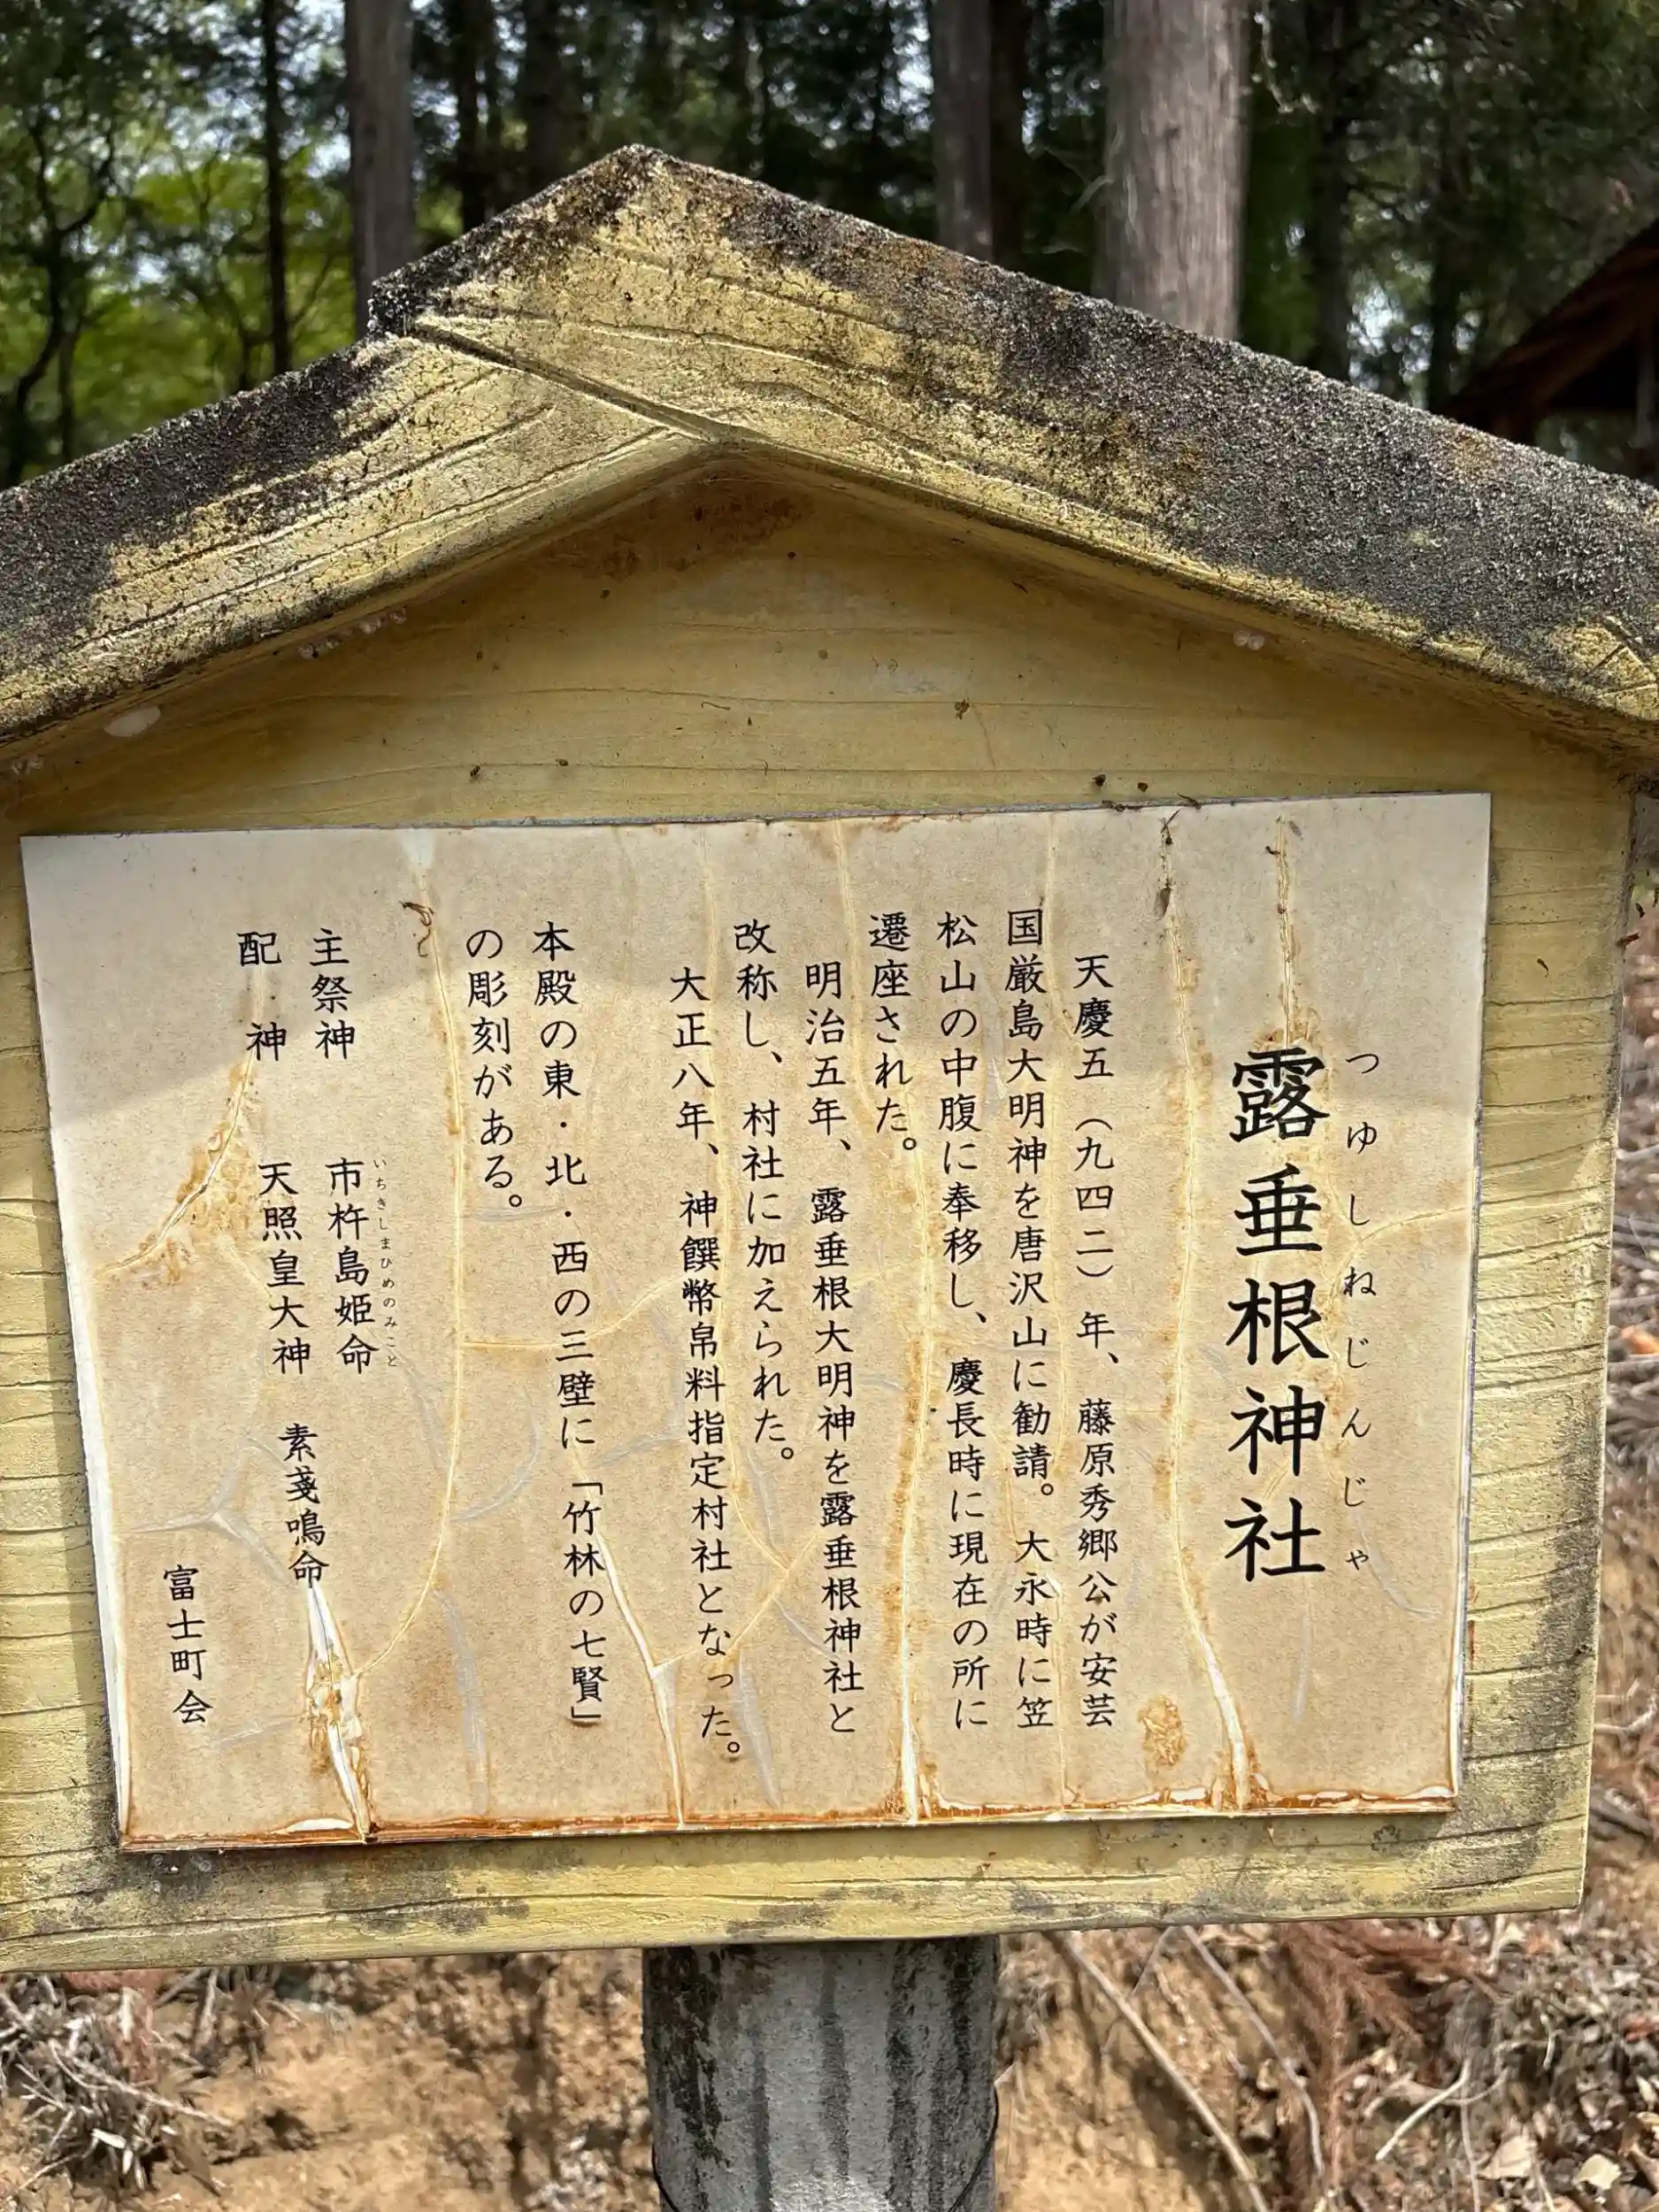 露垂根神社
つゆしねじんじゃ
天慶五（九四二）年、藤原秀郷公が安芸
国厳島大明神を唐沢山に勧請。大永時に笠
松山の中腹に奉移し、慶長時に現在の所に
遷座された。
明治五年、露垂根大明神を露垂根神社と
改称し、村社に加えられた。
大正八年、神饌幣帛料指定村社となった。
本殿の東・北・西の三壁に「竹林の七賢」
の彫刻がある。
主祭神　市杵島姫命
いちきしまひめのみこと
配神　天照皇大神　素戔鳴命
富士町会